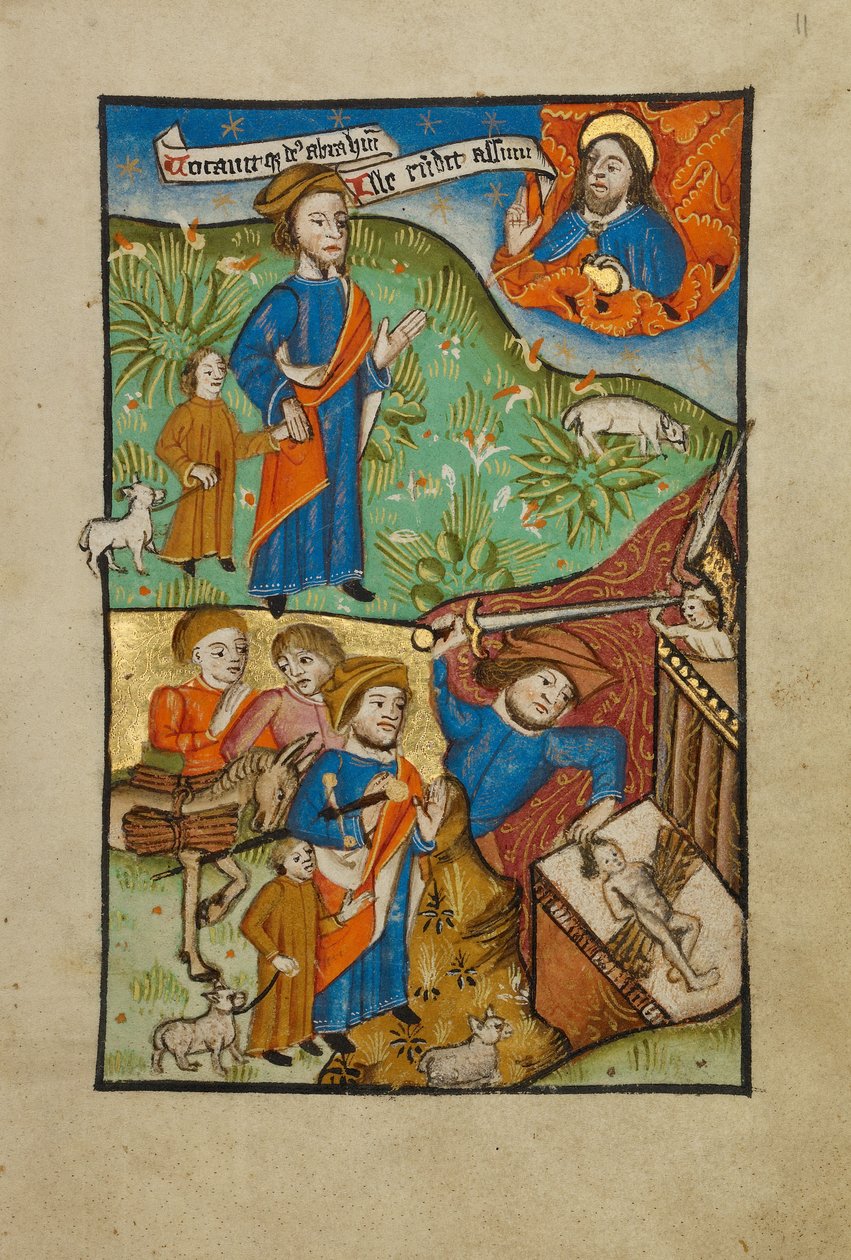 11
Vocauit qꝫ deꝰ abrahā
Ille rn̄dit assum